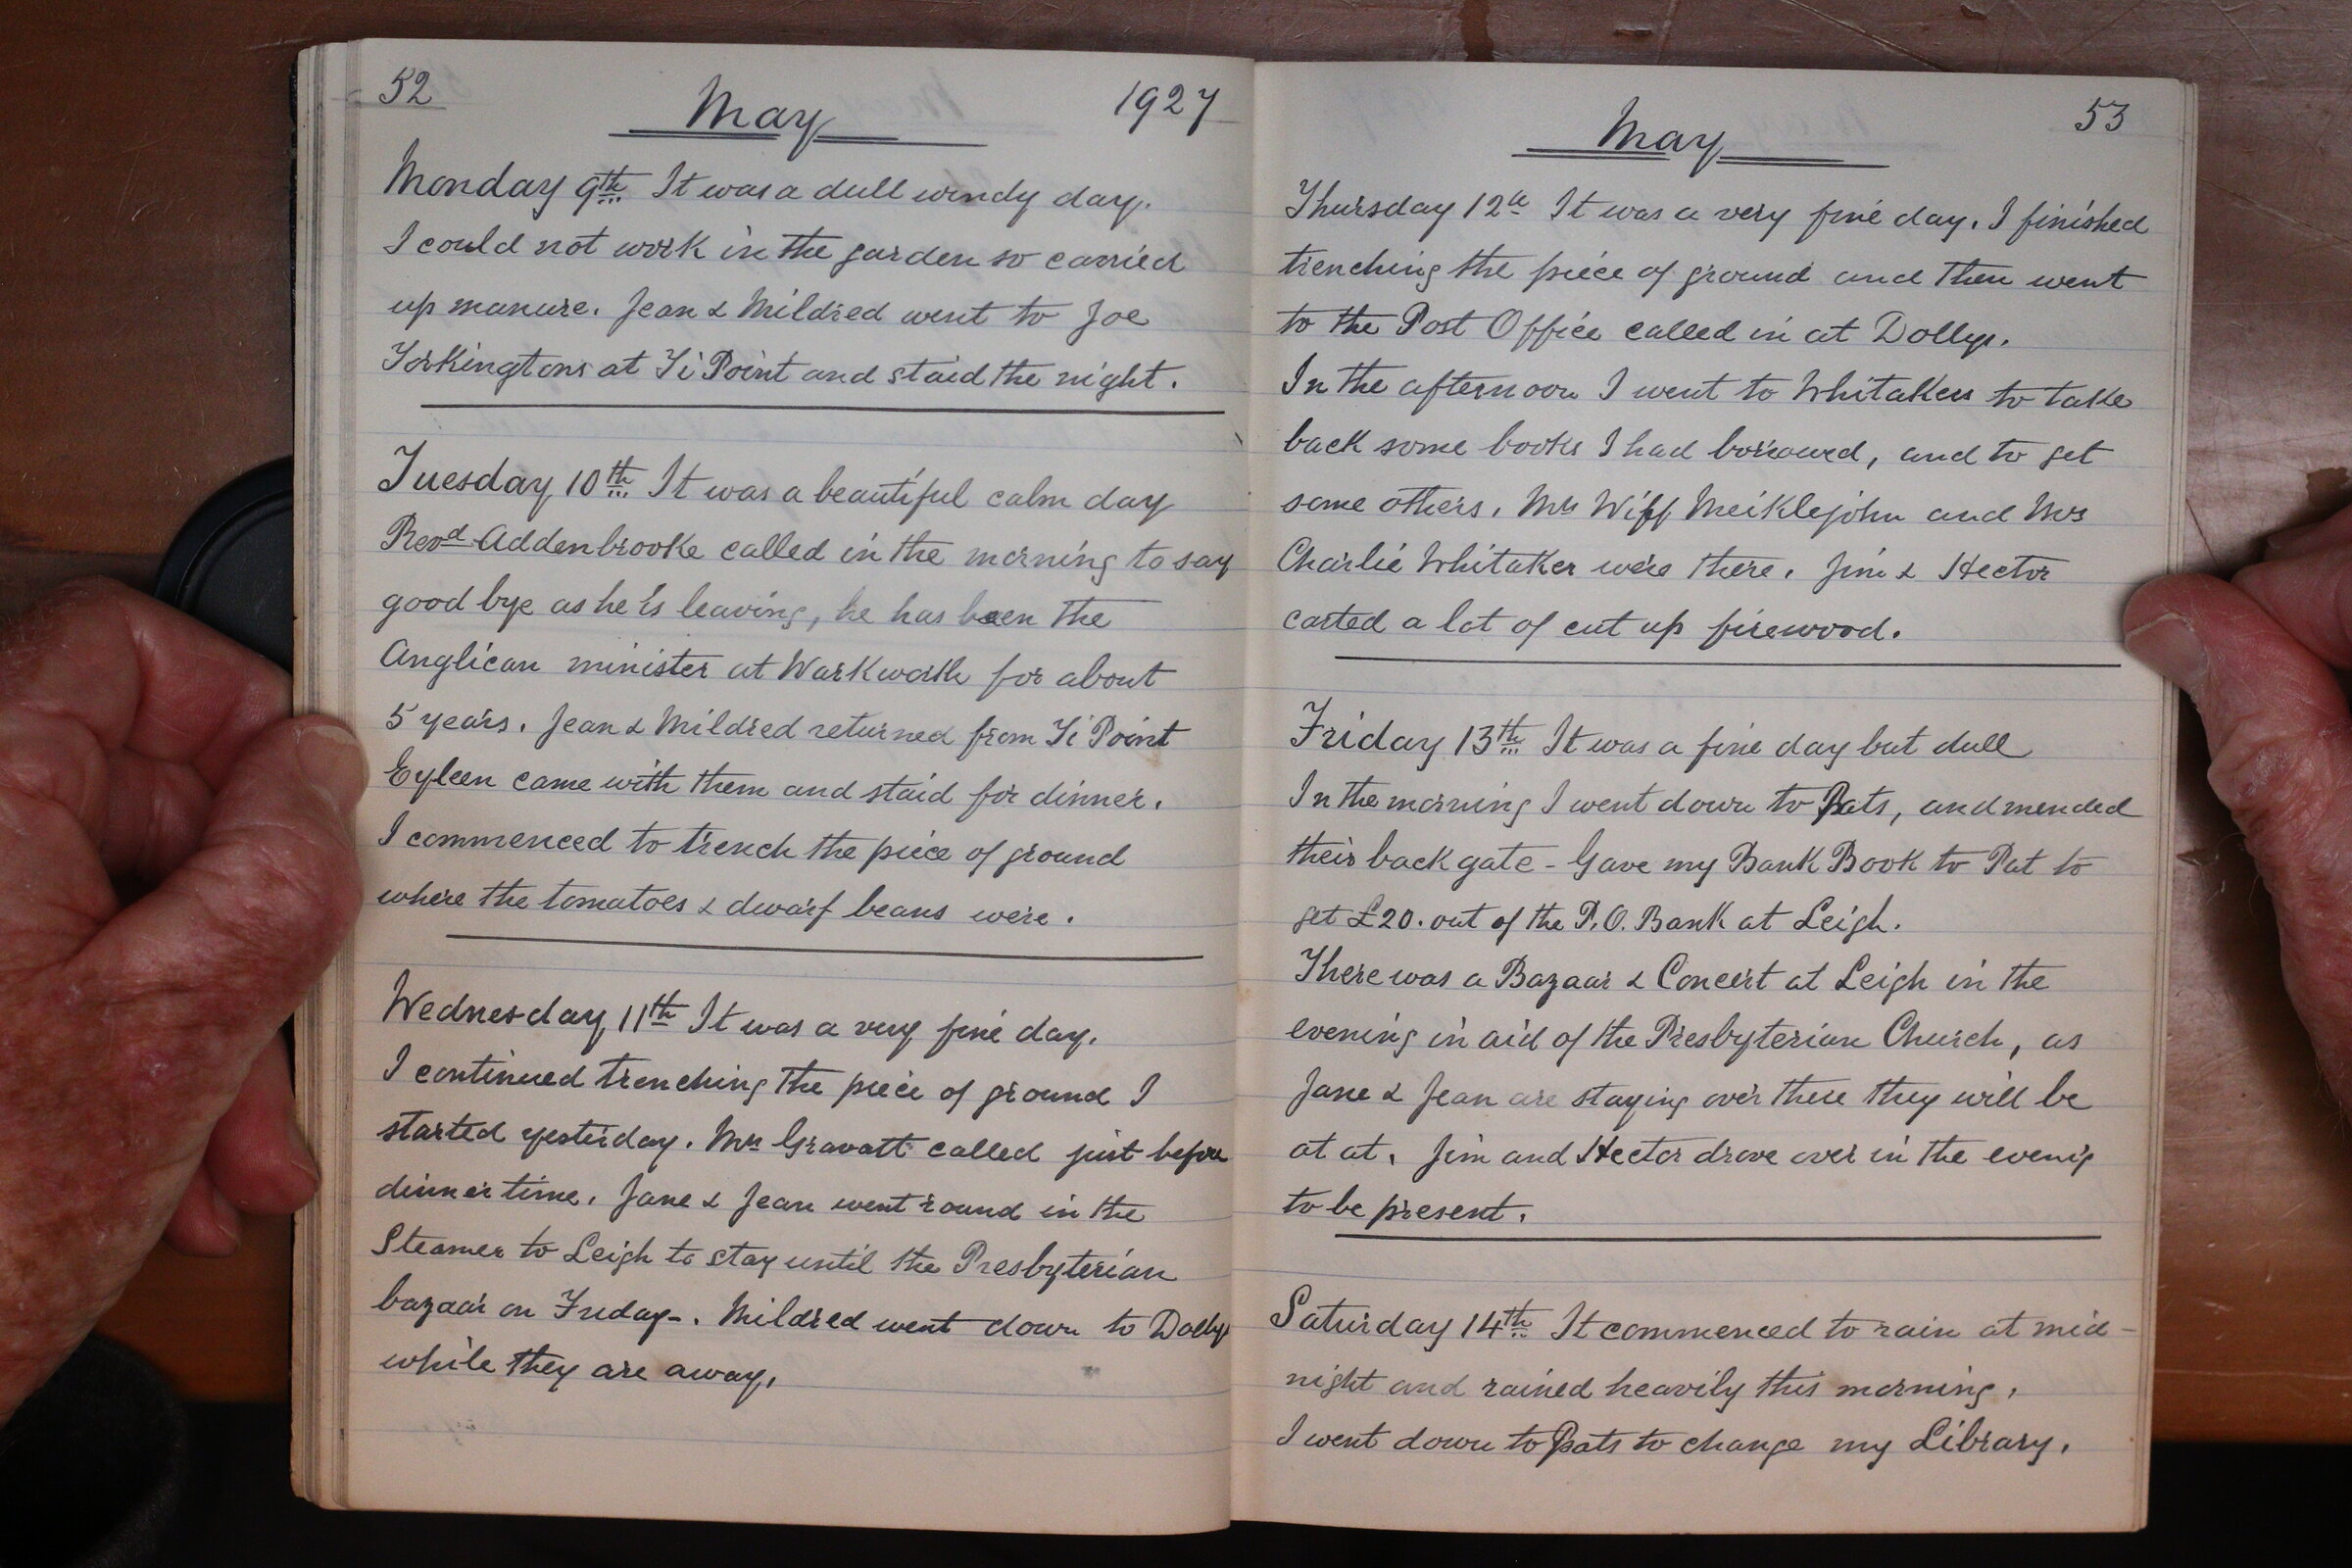 52
May
1927
Monday 9th It was a dull windy day.
I could not work in the garden so carried
up manure. Jean & Mildred went to Joe
Torkingtons at Ti Point and staid the night.
Tuesday 10th It was a beautiful calm day
Revd Addenbrooke called in the morning to say
good bye as he is leaving, he has been the
Anglican minister at Warkworth for about
5 years. Jean & Mildred returned from Ti Point
Eyleen came with them and staid for dinner.
I commenced to trench the piece of ground
where the tomatoes & dwarf beans were.
Wednesday 11th It was a very fine day.
I continued trenching the piece of ground I
started yesterday. Mrs Gravatt called just before
dinner time. Jane & Jean went round in the
Steamer to Leigh to stay until the Presbyterian
bazaar on Friday-. Mildred went down to Dollys
while they are away.
53
May
Thursday 12th It was a very fine day. I finished
trenching the piece of ground and then went
to the Post Office called in at Dollys.
In the afternoon I went to Whitakers to take
back some books I had borrowed, and to get
some others. Mrs Wiff Meiklejohn and Mrs
Charlie Whitaker were there. Jim & Hector
carted a lot of cut up firewood.
Friday 13th It was a fine day but dull
In the morning I went down to Pats, and mended
their back gate - Gave my Bank Book to Pat to
get £20. out of the P.O. Bank at Leigh.
There was a Bazaar & Concert at Leigh in the
evening in aid of the Presbyterian Church, as
Jane & Jean are staying over there they will be
at at. Jim and Hector drove over in the evenig
to be present.
Saturday 14th It commenced to rain at mid-
night and rained heavily this morning.
I went down to Pats to change my Library.